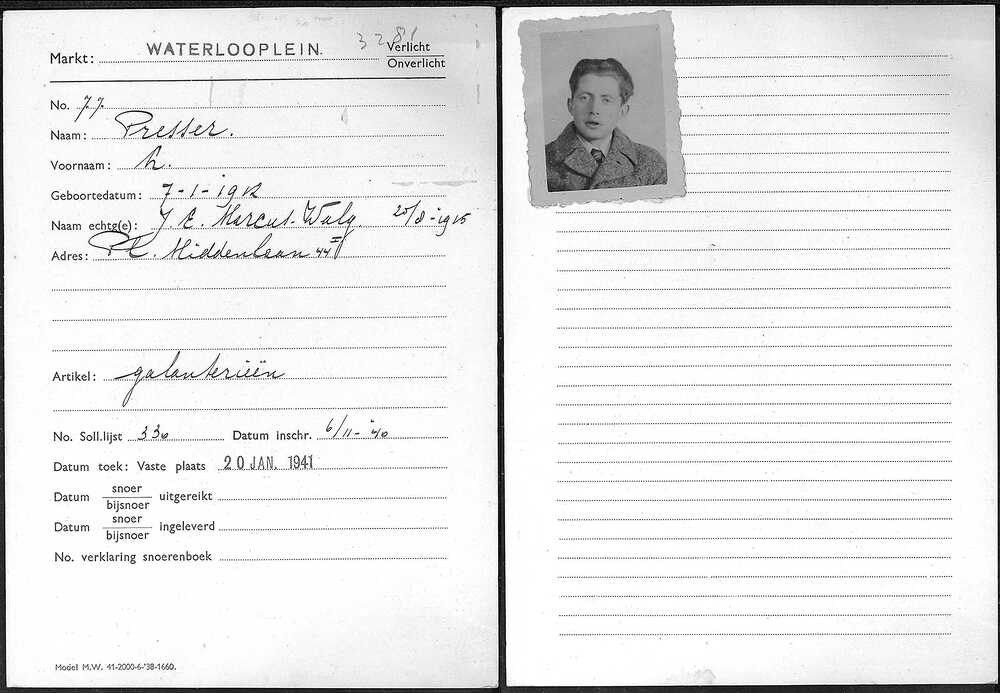 Markt: WATERLOOPLEIN. 3281 Verlicht
Onverlicht
No. 77
Naam: Presser.
Voornaam: h.
Geboortedatum: 7-1-1912
Naam echtg(e): J. E. Marcus-Walg. 20/8-1915
Adres: Pl. Middenlaan 44 II
Artikel: galanterieën
No. Soll.lijst 330 Datum inschr. 6/11-'40
Datum toek: Vaste plaats 20 JAN. 1941
Datum snoer
bijsnoer uitgereikt
Datum snoer
bijsnoer ingeleverd
No. verklaring snoerenboek
Model M.W. 41-2000-6-'38-1660.